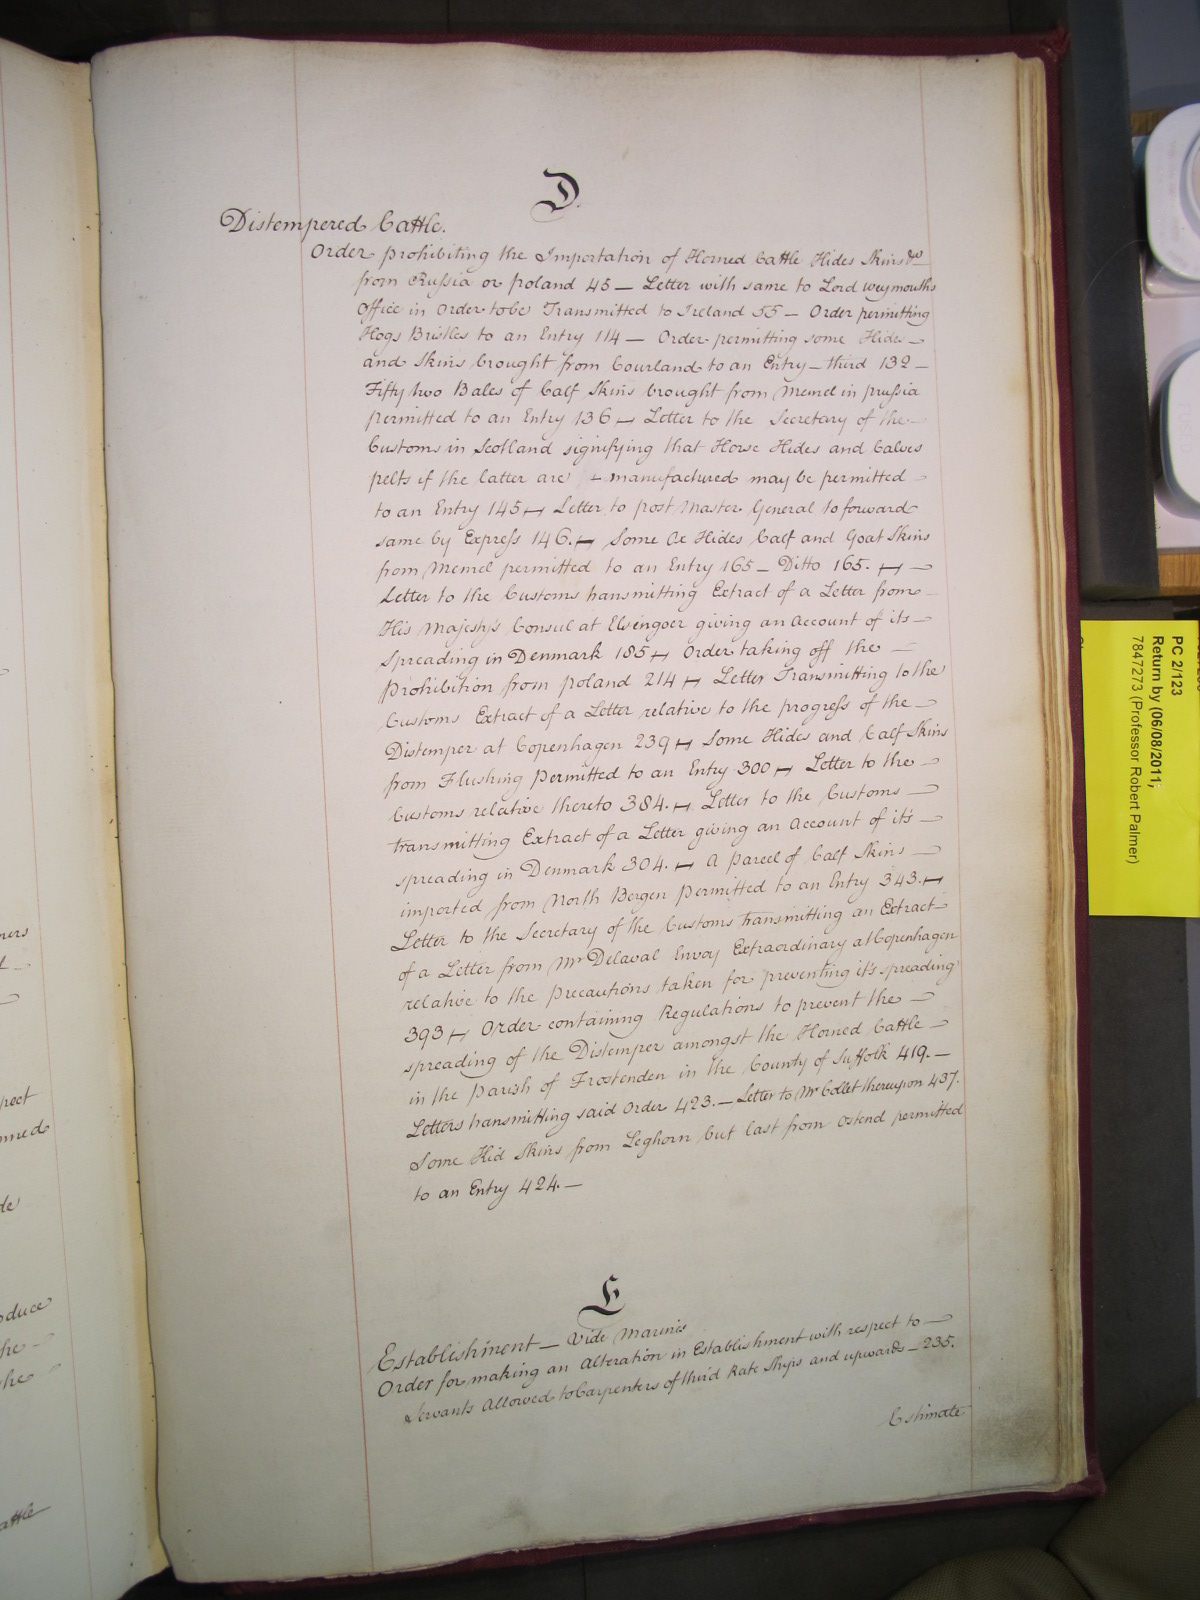 D.
Distempered Cattle.
Order prohibiting the Importation of Horned Cattle Hides Skins &c
from Russia or poland 45 — Letter with same to Lord weymouths
Office in Order tobe Transmitted to Ireland 55 — Order permitting
Hogs Bristles to an Entry 114 — Order permitting some Hides —
and Skins brought from Courland to an Entry — third 132 —
Fifty two Bales of Calf Skins brought from Memel in prussia
permitted to an Entry 136 — Letter to the Secretary of the —
Customs in Scotland signifying that Horse Hides and Calves
pelts if the latter are manufactured may be permitted —
to an Entry 145 — Letter to post Master General to forward
same by Express 146. — Some Ox Hides Calf and Goat Skins
from Memel permitted to an Entry 165 — Ditto 165. — —
Letter to the Customs transmitting Extract of a Letter from —
His Majesty's Consul at Elsengoer giving an Account of its —
spreading in Denmark 185 — Order taking off the —
Prohibition from poland 214 — Letter Transmitting to the
Customs Extract of a Letter relative to the progress of the —
Distemper at Copenhagen 239 — Some Hides and Calf Skins
from Flushing Permitted to an Entry 300 — Letter to the —
Customs relative thereto 384. — Letter to the Customs —
transmitting Extract of a Letter giving an Account of it's —
spreading in Denmark 304. — A Parcel of Calf Skins —
imported from North Bergen Permitted to an Entry 343. —
Letter to the Secretary of the Customs transmitting an Extract
of a Letter from Mr Delaval Envoy Extraordinary at Copenhagen
relative to the Precautions taken for preventing it's spreading
393 — Order containing Regulations to prevent the —
spreading of the Distemper amongst the Horned Cattle —
in the Parish of Frostenden in the County of Suffolk 419. —
Letters transmitting said Order 423. — Letter to Mr Collet thereupon 437.
Some Kid Skins from Leghorn but last from Ostend permitted
to an Entry 424. —
E
Establishment — Vide Marines
Order for making an Alteration in Establishment with respect to —
Servants Allowed to Carpenters of third Rate Ships and upwards — 235.
Estimate
PC 2/123
Return by (06/08/2011;
7847273 (Professor Robert Palmer)